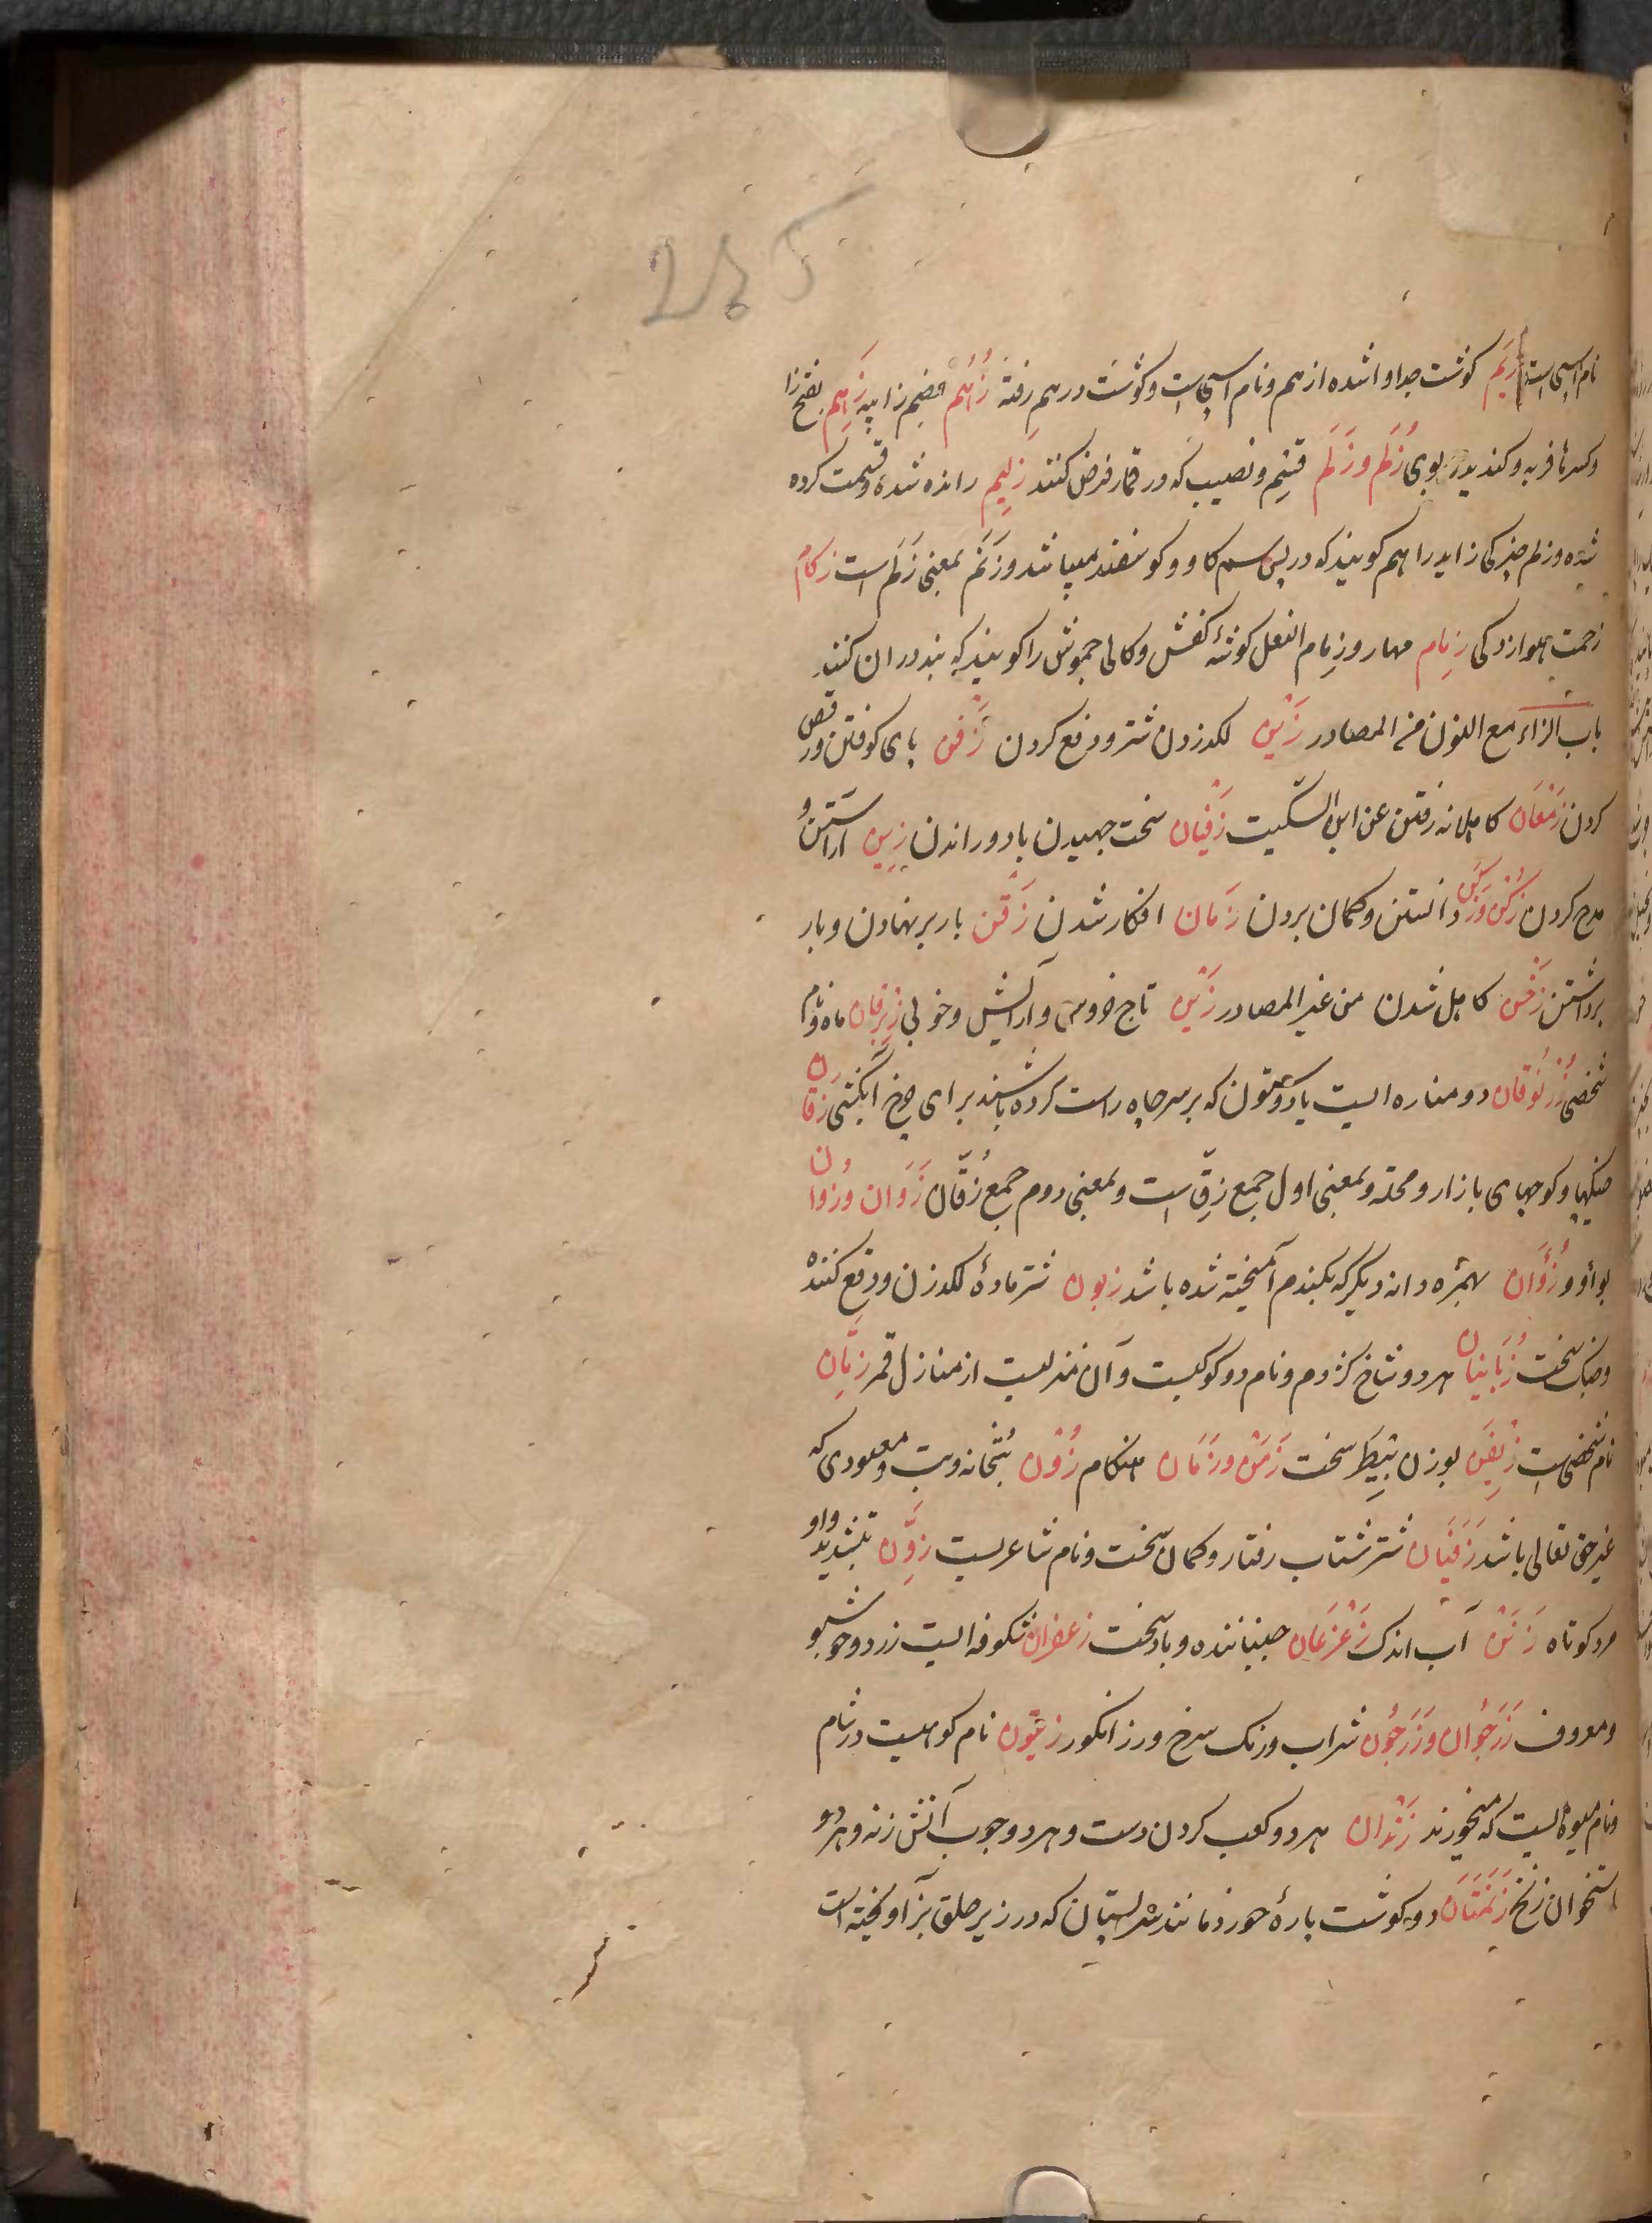 نام اسپی است زِیَم گوشت جدا واشده از هم و نام اسپی است و گوشت در هم رفته زُهْم بضم زا پیه زَهِم بفتح زا
و کسر ها فربه و کنده بوی زُلَم و زَلَم قتیم و نصیب که در قمار فرض کنند زَلِیم رانده شده و قسمت کرده
شده و زلم چیزکی زاید را هم کویند که در پس سم کاو و کوسفند میباشد و زَنَم بمعنی زَلَم است زکام
زحمت هوازدکی زِمام مهار و زِمام النعل کوشهٔ کفش و کالی جموش را کویند که بند در ان کنند
باب الزاء مع النون من المصادر زَبْن لکد زدن شتر و دفع کردن زَفْن پای کوفتن و رقص
کردن زَمَعَان کاهلانه رفتن عن ابن السکیت زَفَیان سخت جهیدن باد و راندن زَین اراستن و
مدح کردن زَکْن وزَکَن دانستن و کمان بردن زَمان افکار شدن زَقْن بار بر نهادن و بار
برداشتن زَخَن کاهل شدن من غیر المصادر زَیْن تاج خروس و آرایش و خوبی زِبْرِقان ماه و نام
شخصی زُرْنُوقان دو مناره ایست یا دو ستون که بر سر چاه راست کرده باشند برای چرخ آبکشی زقان
خیکها و کوچهای بازار و محله و بمعنی اول جمع زِقّ است و بمعنی دوم جمع زُقَاق زَوَان و زُوان
بواو و زُؤَان بهمزه دانه دیکر که بکندم آمیخته شده باشد زبون شتر مادهٔ لکدزن و دفع کننده
و جنک سخت زُبَانَیان هر دو شاخ کژدم و نام دو کوکبست و آن منزلیست از منازل قمر زَبّان
نام شخصی است زِیَفْن بوزن بَیَطْر سخت زَمَن و زَمَان هنکام زُوْن بتخانه و بت و معبودی که
غیر حق تعالی باشد زَفَیَان شتر شتاب رفتار و کمان سخت و نام شاعریست زِوَنّ بتشدید واو
مرد کوتاه زَنَن آب اندک زَعْزَعَان جنباننده و باد سخت زعفران شکوفه ایست زرد و خوشبو
و معروف زَرَجُوان و زَرَجُون شراب و رنک سرخ و رز انکور زیتون نام کوهیست در شام
و نام میوه ایست که میخورند زَنْدان هر دو کعب کردن دست و هر دو چوب آتش زنه و هر دو
استخوان زنخ زَنَمَتَان دو کوشت پارهٔ خورد مانند سر پستان که در زیر حلق بز آویخته است